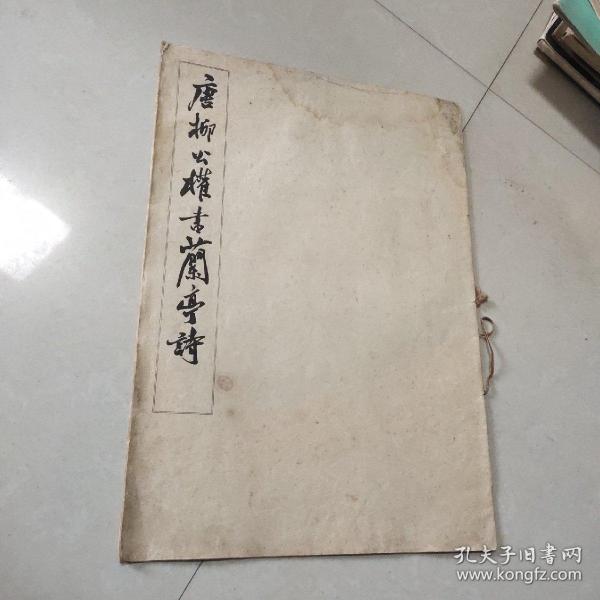 唐柳公權書蘭亭詩
孔夫子旧書网
www.kongfz.com